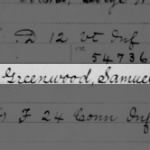 D 12 Vt Inf
54736
Greenwood, Samuel
F 24 Conn Inf